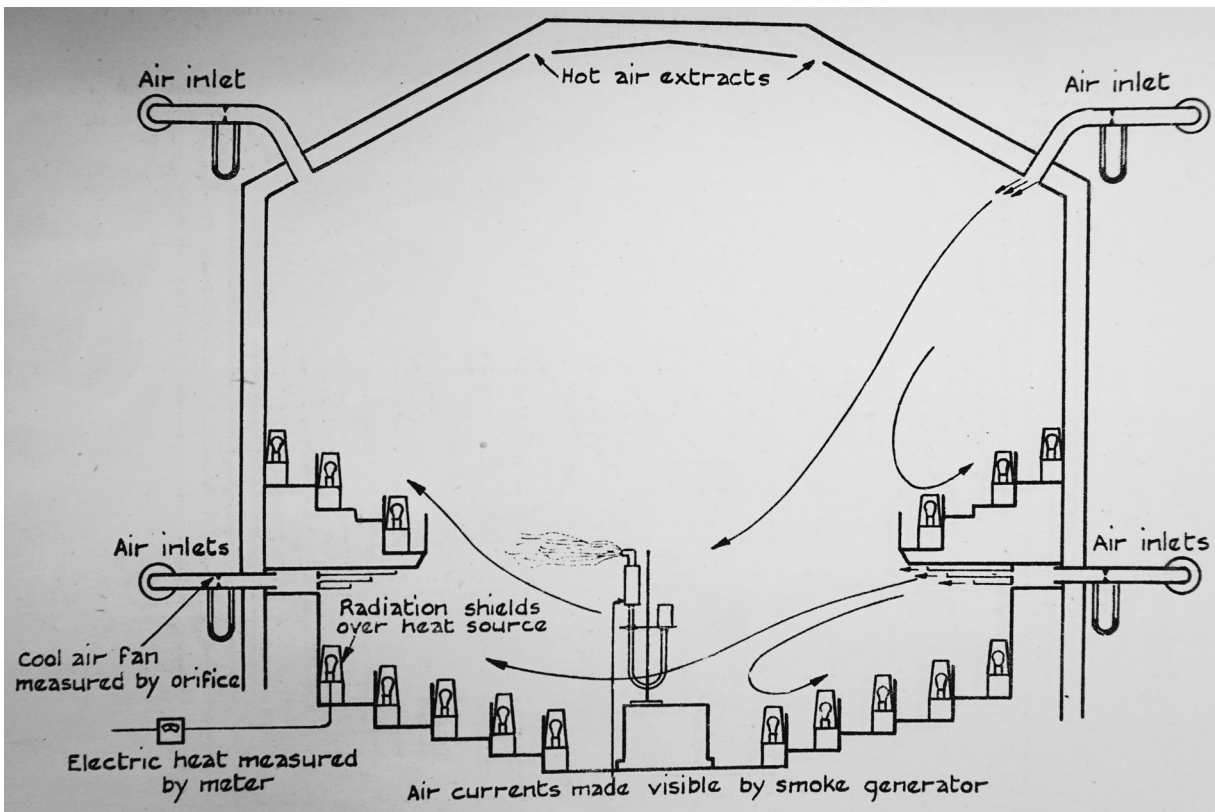 Hot air extracts
Air inlet
Air inlet
Air inlets
Air inlets
Radiation shields
over heat source
Cool air fan
measured by orifice
Electric heat measured
by meter
Air currents made visible by smoke generator